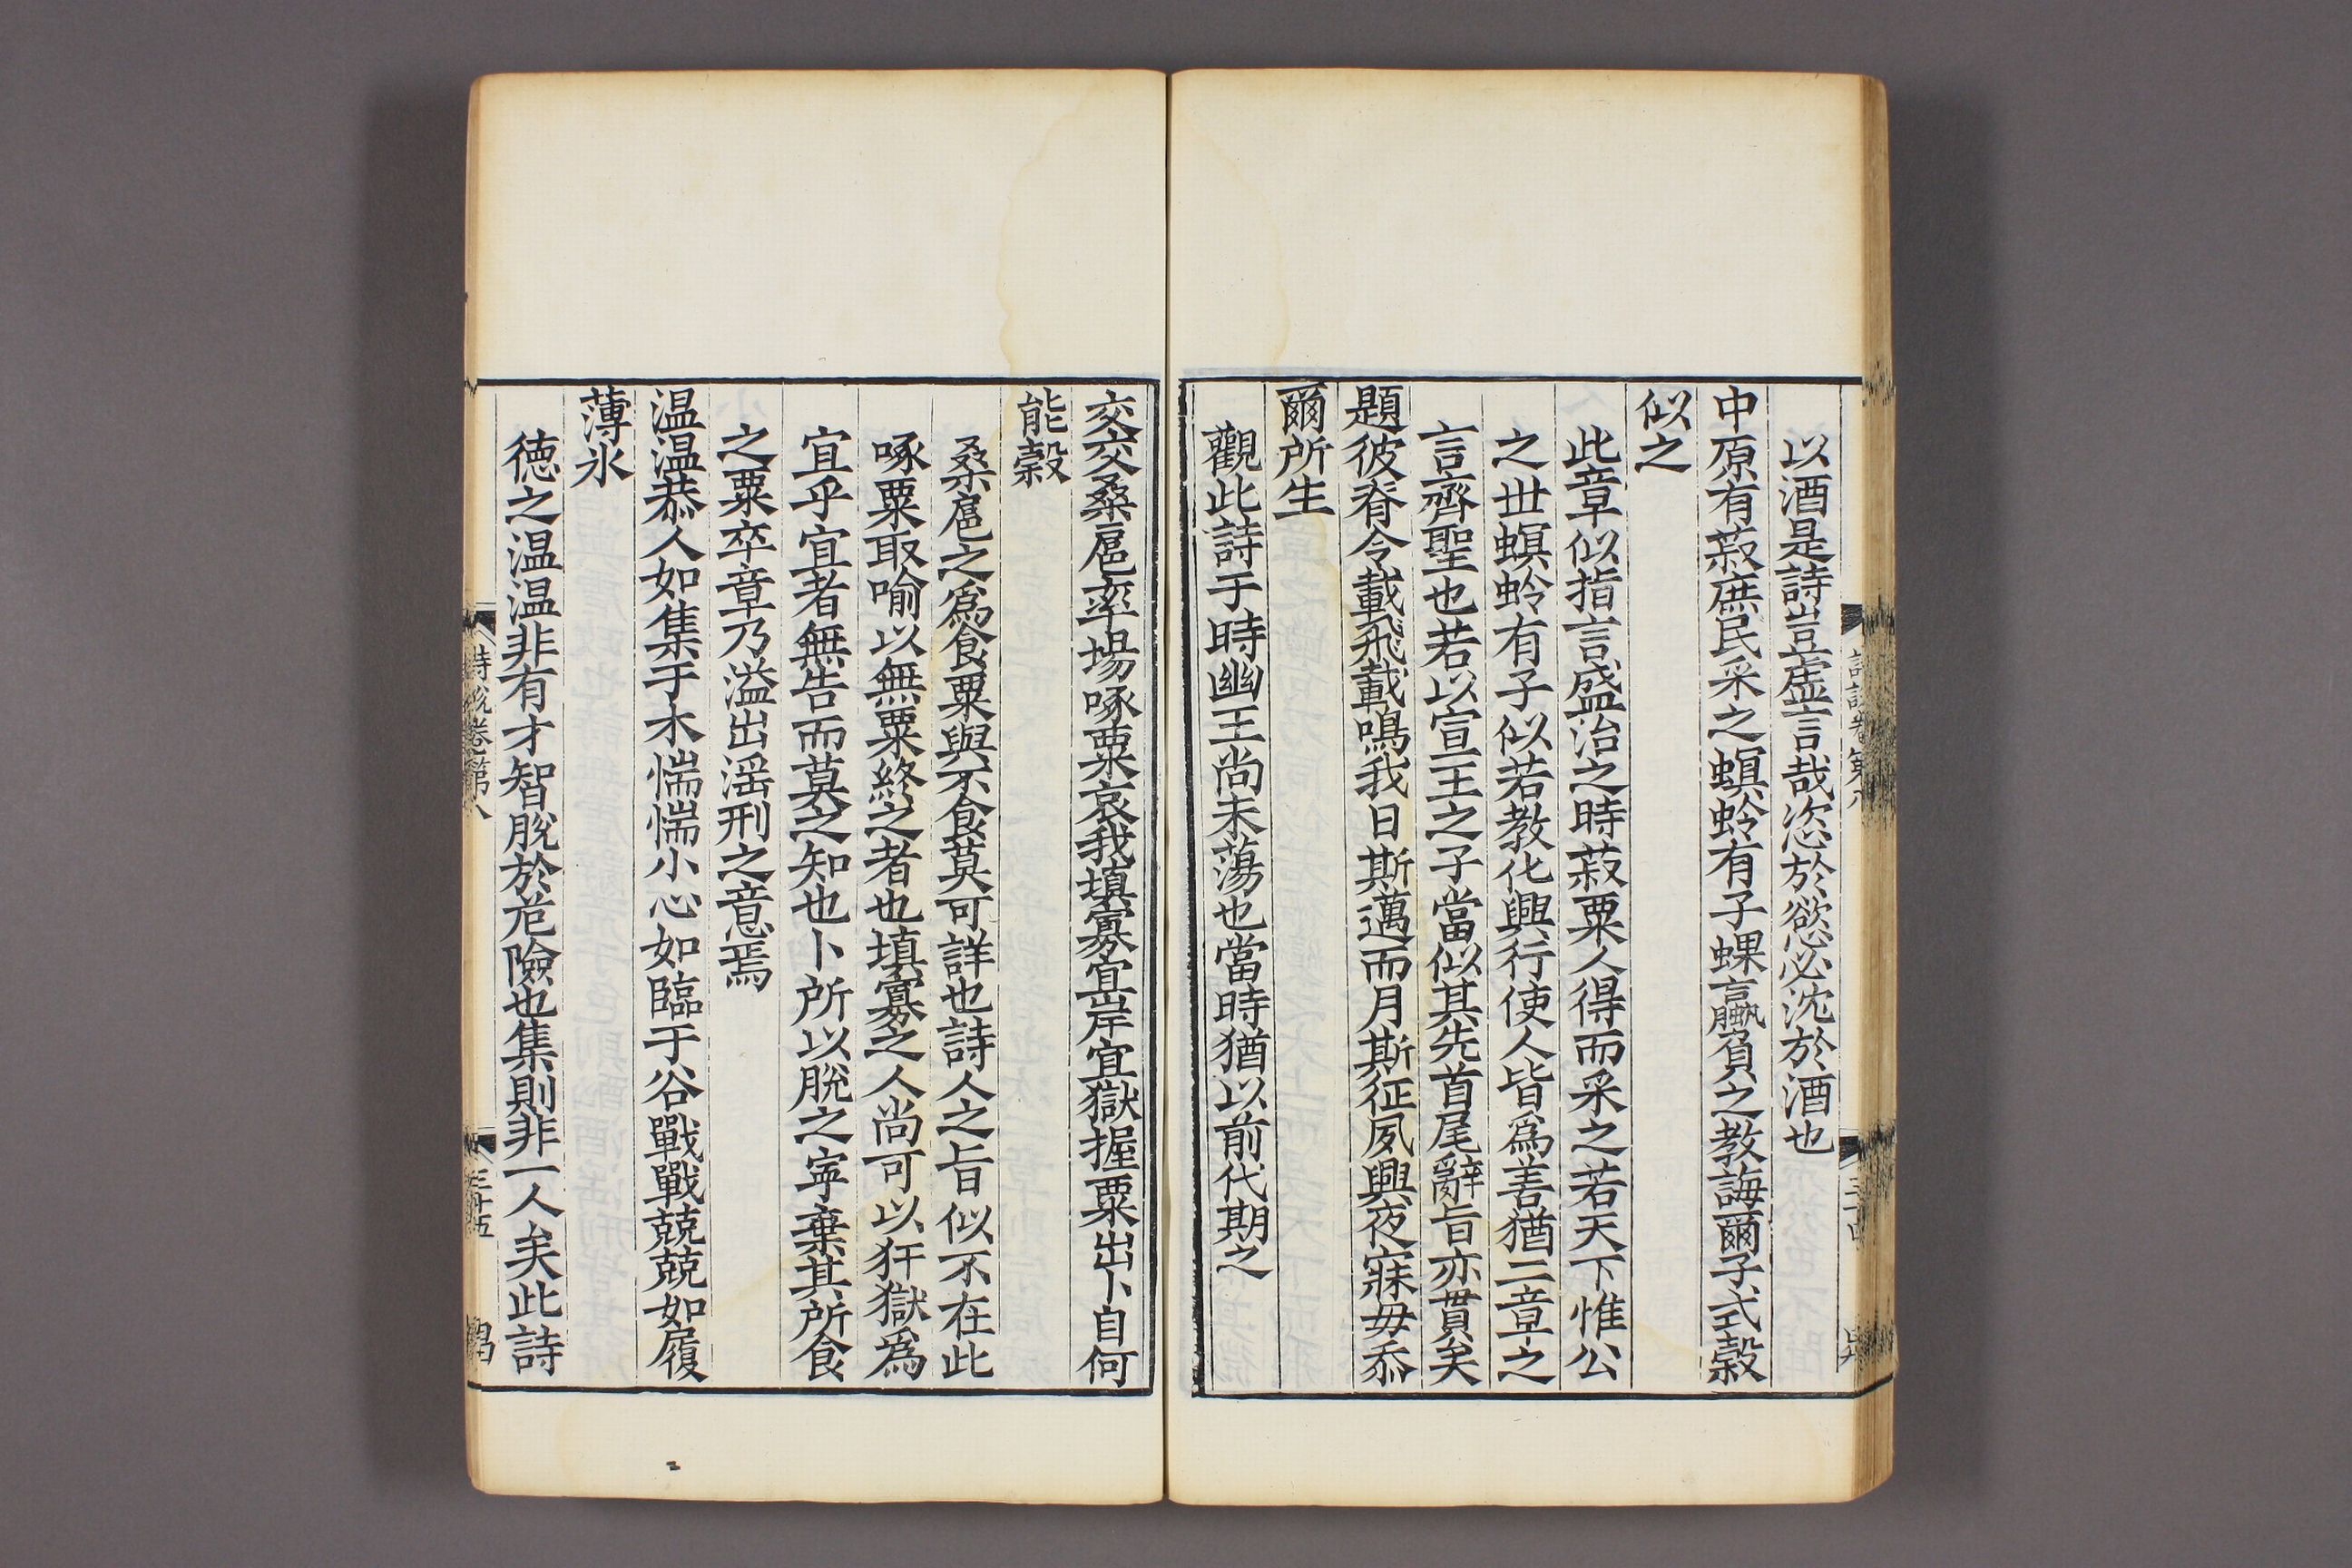 以酒是詩豈虛言哉恣於慾必沈於酒也
中原有菽庶民采之螟蛉有子蜾蠃負之教誨爾子式穀
似之
此章似指言盛治之時菽粟人得而采之若天下惟公
之世螟蛉有子似若教化興行使人皆爲善猶二章之
言齊聖也若以宣王之子當似其先首尾辭旨亦貫矣
題彼脊令載飛載鳴我日斯邁而月斯征夙興夜寐毋忝
爾所生
觀此詩于時幽王尚未蕩也當時猶以前代期之
交交桑扈率場啄粟哀我填寡宜岸宜獄握粟出卜自何
能穀
桑扈之爲食粟與不食莫可詳也詩人之旨似不在此
啄粟取喻以無粟終之者也填寡之人尚可以犴獄爲
宜乎宜者無告而莫之知也卜所以脫之寧棄其所食
之粟卒章乃溢出淫刑之意焉
温温恭人如集于木惴惴小心如臨于谷戰戰兢兢如履
薄氷
德之温温非有才智脫於危險也集則非一人矣此詩
詩說卷第八
三十五